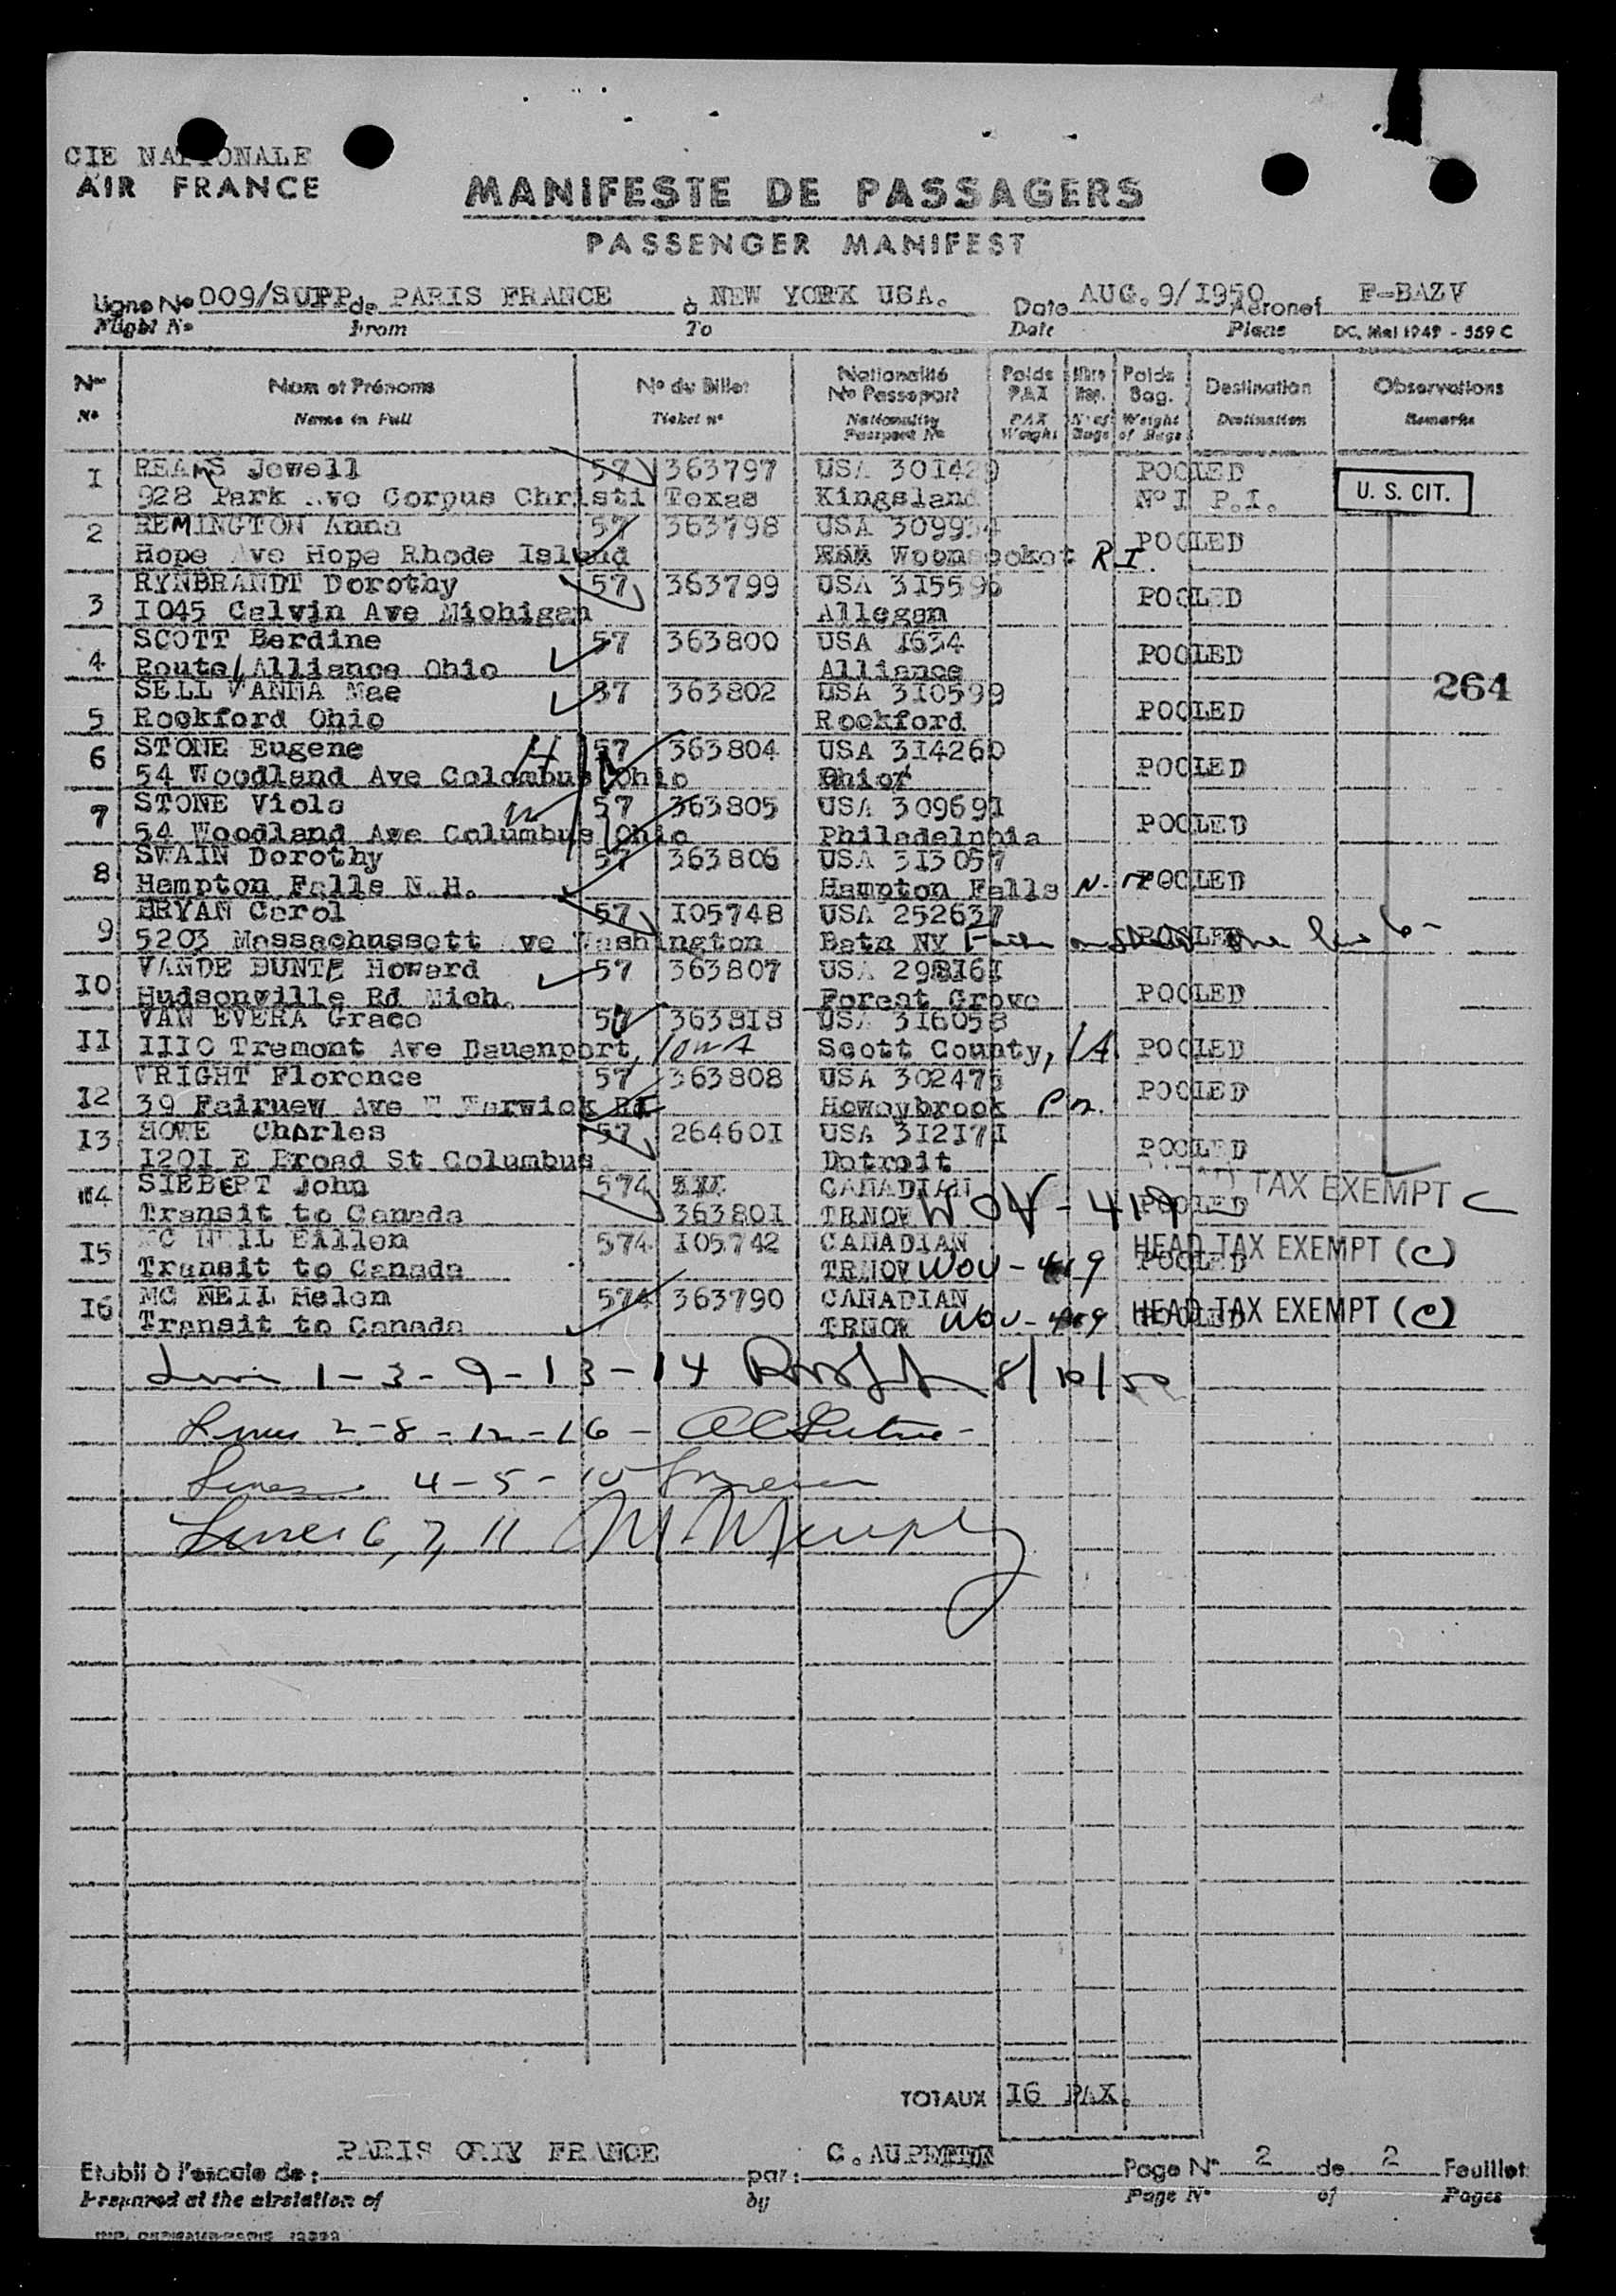 CIE NATIONALE
AIR FRANCE
MANIFESTE DE PASSAGERS
PASSENGER MANIFEST
Ligne No 009/SUPP de PARIS FRANCE à NEW YORK USA. Date AUG. 9/1950 Aéronef F-BAZV
Flight No From To Date Plane DC. Mai 1949 - 559 C
Nos Nom et Prénoms No du Billet Nationalité No Passeport Poids PAX Nbre Bag. Poids Bag. Destination Observations
No Name in Full Ticket no Nationality Passport No PAX Weight No of Bags Weight of Bags Destination Remarks
1 REAMS Jewell 57 363797 USA 301429 POOLED
928 Park Ave Corpus Christi Texas Kingsland No I P.I. U. S. CIT.
2 REMINGTON Anna 57 363798 USA 309934 POOLED
Hope Ave Hope Rhode Island Woonsocket R.I.
3 RYNBRANDT Dorothy 57 363799 USA 315596 POOLED
1045 Calvin Ave Michigan Allegan
4 SCOTT Berdine 57 363800 USA 1634 POOLED
Route 1 Alliance Ohio Alliance
264
5 SELL VANNA Mae 57 363802 USA 310599 POOLED
Rockford Ohio Rockford
6 STONE Eugene 57 363804 USA 314260 POOLED
54 Woodland Ave Colombus Ohio
7 STONE Viola 57 363805 USA 309691 POOLED
54 Woodland Ave Columbus Ohio Philadelphia
8 SWAIN Dorothy 57 363806 USA 313057 POOLED
Hampton Falls N.H. Hampton Falls N.H.
9 BRYAN Carol 57 105748 USA 252637 POOLED
5203 Massachussett Ave Washington Batn NY
10 VANDE BUNTE Howard 57 363807 USA 298161 POOLED
Hudsonville Rd Mich. Forest Grove
11 VAN EVERA Grace 57 363818 USA 316058 POOLED
1110 Tremont Ave Dauenport, Iowa Scott County, IA
12 WRIGHT Florence 57 363808 USA 302475 POOLED
39 Fairuew Ave W Warwick RI Howoybrook Pa.
13 HOWE Charles 57 264601 USA 312171 POOLED
1201 E Broad St Columbus Detroit
14 SIEBERT John 574 CANADIAN TAX EXEMPT C
Transit to Canada 363801 TRNOW WOV-419 POOLED
15 MC NEIL Eillen 574 105742 CANADIAN HEAD TAX EXEMPT (C)
Transit to Canada TRNOW WOV-419 POOLED
16 MC NEIL Helen 574 363790 CANADIAN HEAD TAX EXEMPT (C)
Transit to Canada TRNOW WOV-419 POOLED
Lines 1-3-9-13-14 8/10/50
Lines 2-8-12-16-
Lines 4-5-10
Lines 6, 7, 11 M. Murphy
TOTAUX 16 PAX.
Etabli à l'escale de: PARIS ORLY FRANCE par: C. AUPETIT Page No 2 de 2 Feuillet
Prepared at the airstation of by Page No of Pages